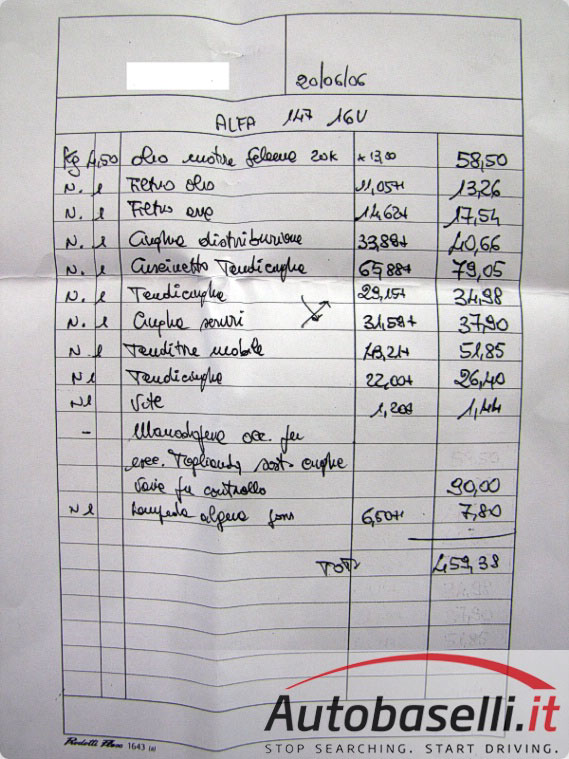 20/06/06
ALFA 147 16V
Kg 4,50 Olio motore Selenia 20K × 13,00 58,50
N. 1 Filtro olio 11,05+ 13,26
N. 1 Filtro aria 14,62+ 17,54
N. 1 Cinghia distribuzione 33,88+ 40,66
N. 1 Cuscinetto Tendicinghia 65,88+ 79,05
N. 1 Tendicinghia 29,15+ 34,98
N. 1 Cinghia servizi 31,59+ 37,90
N 1 Tenditore mobile 43,21+ 51,85
N 1 Tendicinghia 22,00+ 26,40
N 1 Vite 1,20+ 1,44
- Manodopera occ. per
esec. Tagliando, sost. cinghie
varie per controllo 90,00
N 1 Lampada 6,50+ 7,80
TOT 459,38
Rodotti Flex 1643 (a)
Autobaselli.it
STOP SEARCHING. START DRIVING.